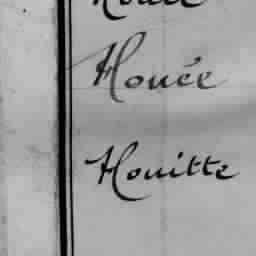 Houée
Houitte